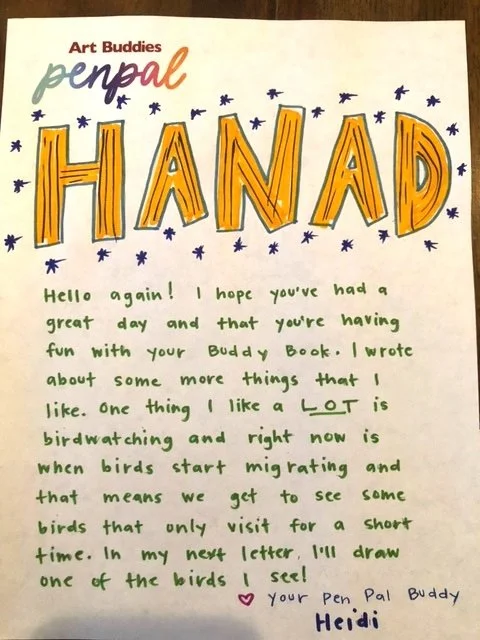 Art Buddies
penpal
HANAD
Hello again! I hope you've had a
great day and that you're having
fun with your Buddy Book. I wrote
about some more things that I
like. One thing I like a LOT is
birdwatching and right now is
when birds start migrating and
that means we get to see some
birds that only visit for a short
time. In my next letter, I'll draw
one of the birds I see!
♡ Your Pen Pal Buddy
Heidi